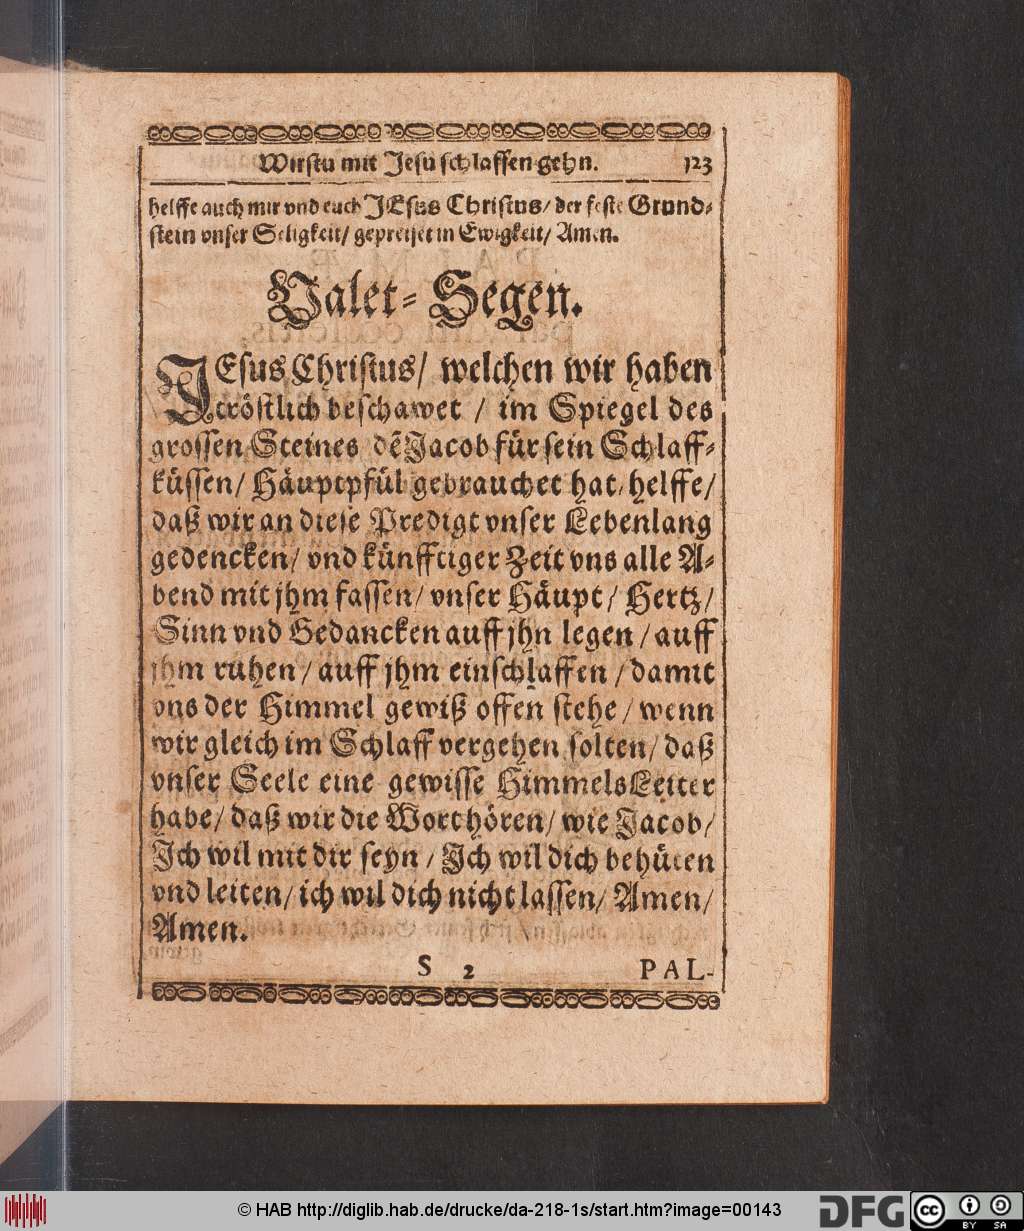 Wirstu mit Jesu schlaffen gehn. 123
helffe auch mir vnd euch JEsus Christus/ der feste Grund-
stein vnser Seligkeit/ gepreiset in Ewigkeit/ Amen.
Valet-Segen.
JEsus Christus/ welchen wir haben
tröstlich beschawet / im Spiegel des
grossen Steines dẽ Jacob für sein Schlaff-
küssen/ Häuptpfül gebrauchet hat, helffe/
daß wir an diese Predigt vnser Lebenlang
gedencken/ vnd künfftiger Zeit vns alle A-
bend mit jhm fassen/ vnser Häupt/ Hertz/
Sinn vnd Gedancken auff jhn legen / auff
jhm ruhen / auff jhm einschlaffen / damit
vns der Himmel gewiß offen stehe / wenn
wir gleich im Schlaff vergehen solten/ daß
vnser Seele eine gewisse HimmelsLeiter
habe/ daß wir die Wort hören/ wie Jacob/
Ich wil mit dir seyn / Ich wil dich behüten
vnd leiten/ ich wil dich nicht lassen/ Amen/
Amen.
S 2 PAL-
© HAB http://diglib.hab.de/drucke/da-218-1s/start.htm?image=00143
DFG
cc
BY SA